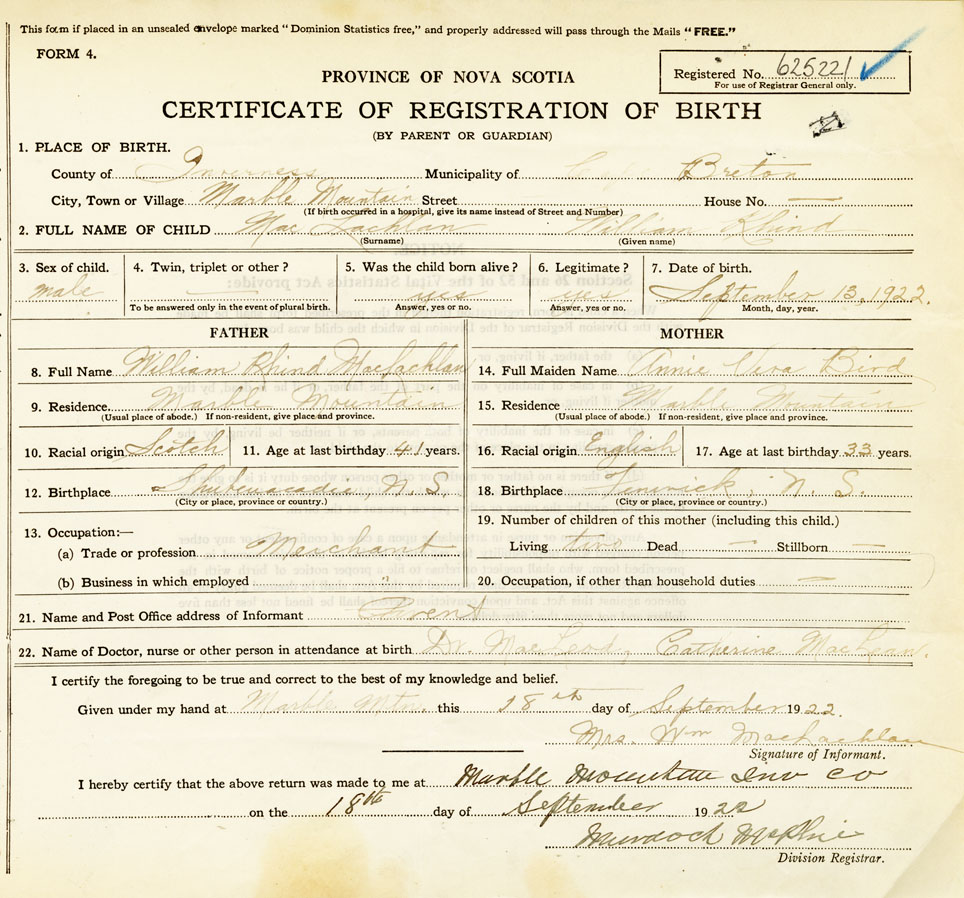 This form if placed in an unsealed envelope marked "Dominion Statistics free," and properly addressed will pass through the Mails "FREE."
FORM 4.
Registered No. 625221
For use of Registrar General only.
PROVINCE OF NOVA SCOTIA
CERTIFICATE OF REGISTRATION OF BIRTH
(BY PARENT OR GUARDIAN)
1. PLACE OF BIRTH.
County of Inverness Municipality of Cape Breton
City, Town or Village Marble Mountain Street House No. —
(If birth occurred in a hospital, give its name instead of Street and Number)
2. FULL NAME OF CHILD MacLachlan William Rhind
(Surname) (Given name)
3. Sex of child. 4. Twin, triplet or other? 5. Was the child born alive? 6. Legitimate? 7. Date of birth.
male — yes yes September 13, 1922.
To be answered only in the event of plural birth. Answer, yes or no. Answer, yes or no. Month, day, year.
FATHER MOTHER
8. Full Name William Rhind MacLachlan 14. Full Maiden Name Annie Vera Bird
9. Residence. Marble Mountain 15. Residence Marble Mountain
(Usual place of abode.) If non-resident, give place and province. (Usual place of abode.) If non-resident, give place and province.
10. Racial origin Scotch 11. Age at last birthday 41 years. 16. Racial origin English 17. Age at last birthday 33 years.
12. Birthplace Shubenacadie, N. S. 18. Birthplace Fenwick, N. S.
(City or place, province or country.) (City or place, province or country.)
13. Occupation:— 19. Number of children of this mother (including this child.)
(a) Trade or profession Merchant Living two Dead — Stillborn —
(b) Business in which employed " 20. Occupation, if other than household duties —
21. Name and Post Office address of Informant Parent
22. Name of Doctor, nurse or other person in attendance at birth Dr. MacLeod, Catherine MacLean.
I certify the foregoing to be true and correct to the best of my knowledge and belief.
Given under my hand at Marble Mtn. this 18th day of September 1922.
Mrs. Wm MacLachlan
Signature of Informant.
I hereby certify that the above return was made to me at Marble Mountain Inv Co
on the 18th day of September 1922
Murdoch McPhie
Division Registrar.